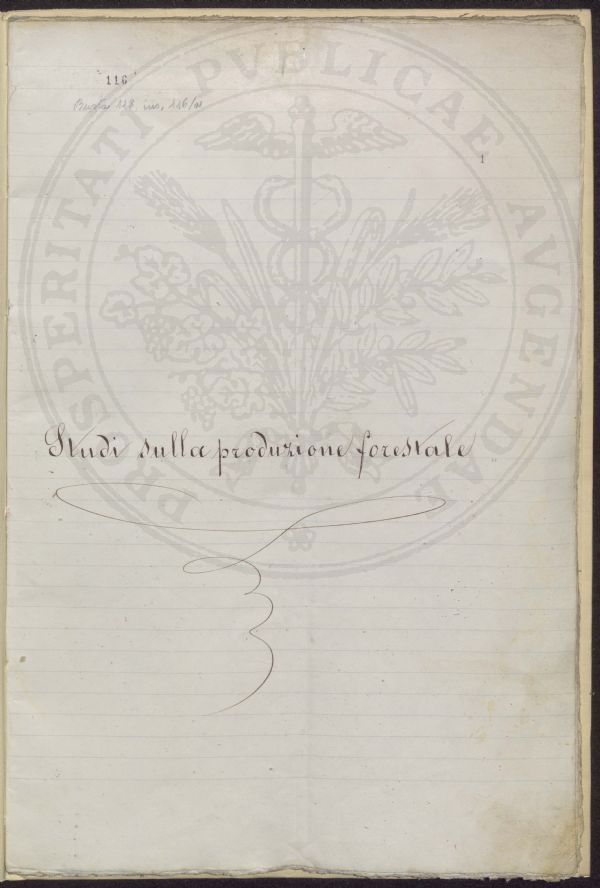 116
Busta 118, ins. 116/01
1
PROSPERITATI PVBLICAE AVGENDAE
Studi sulla produzione forestale